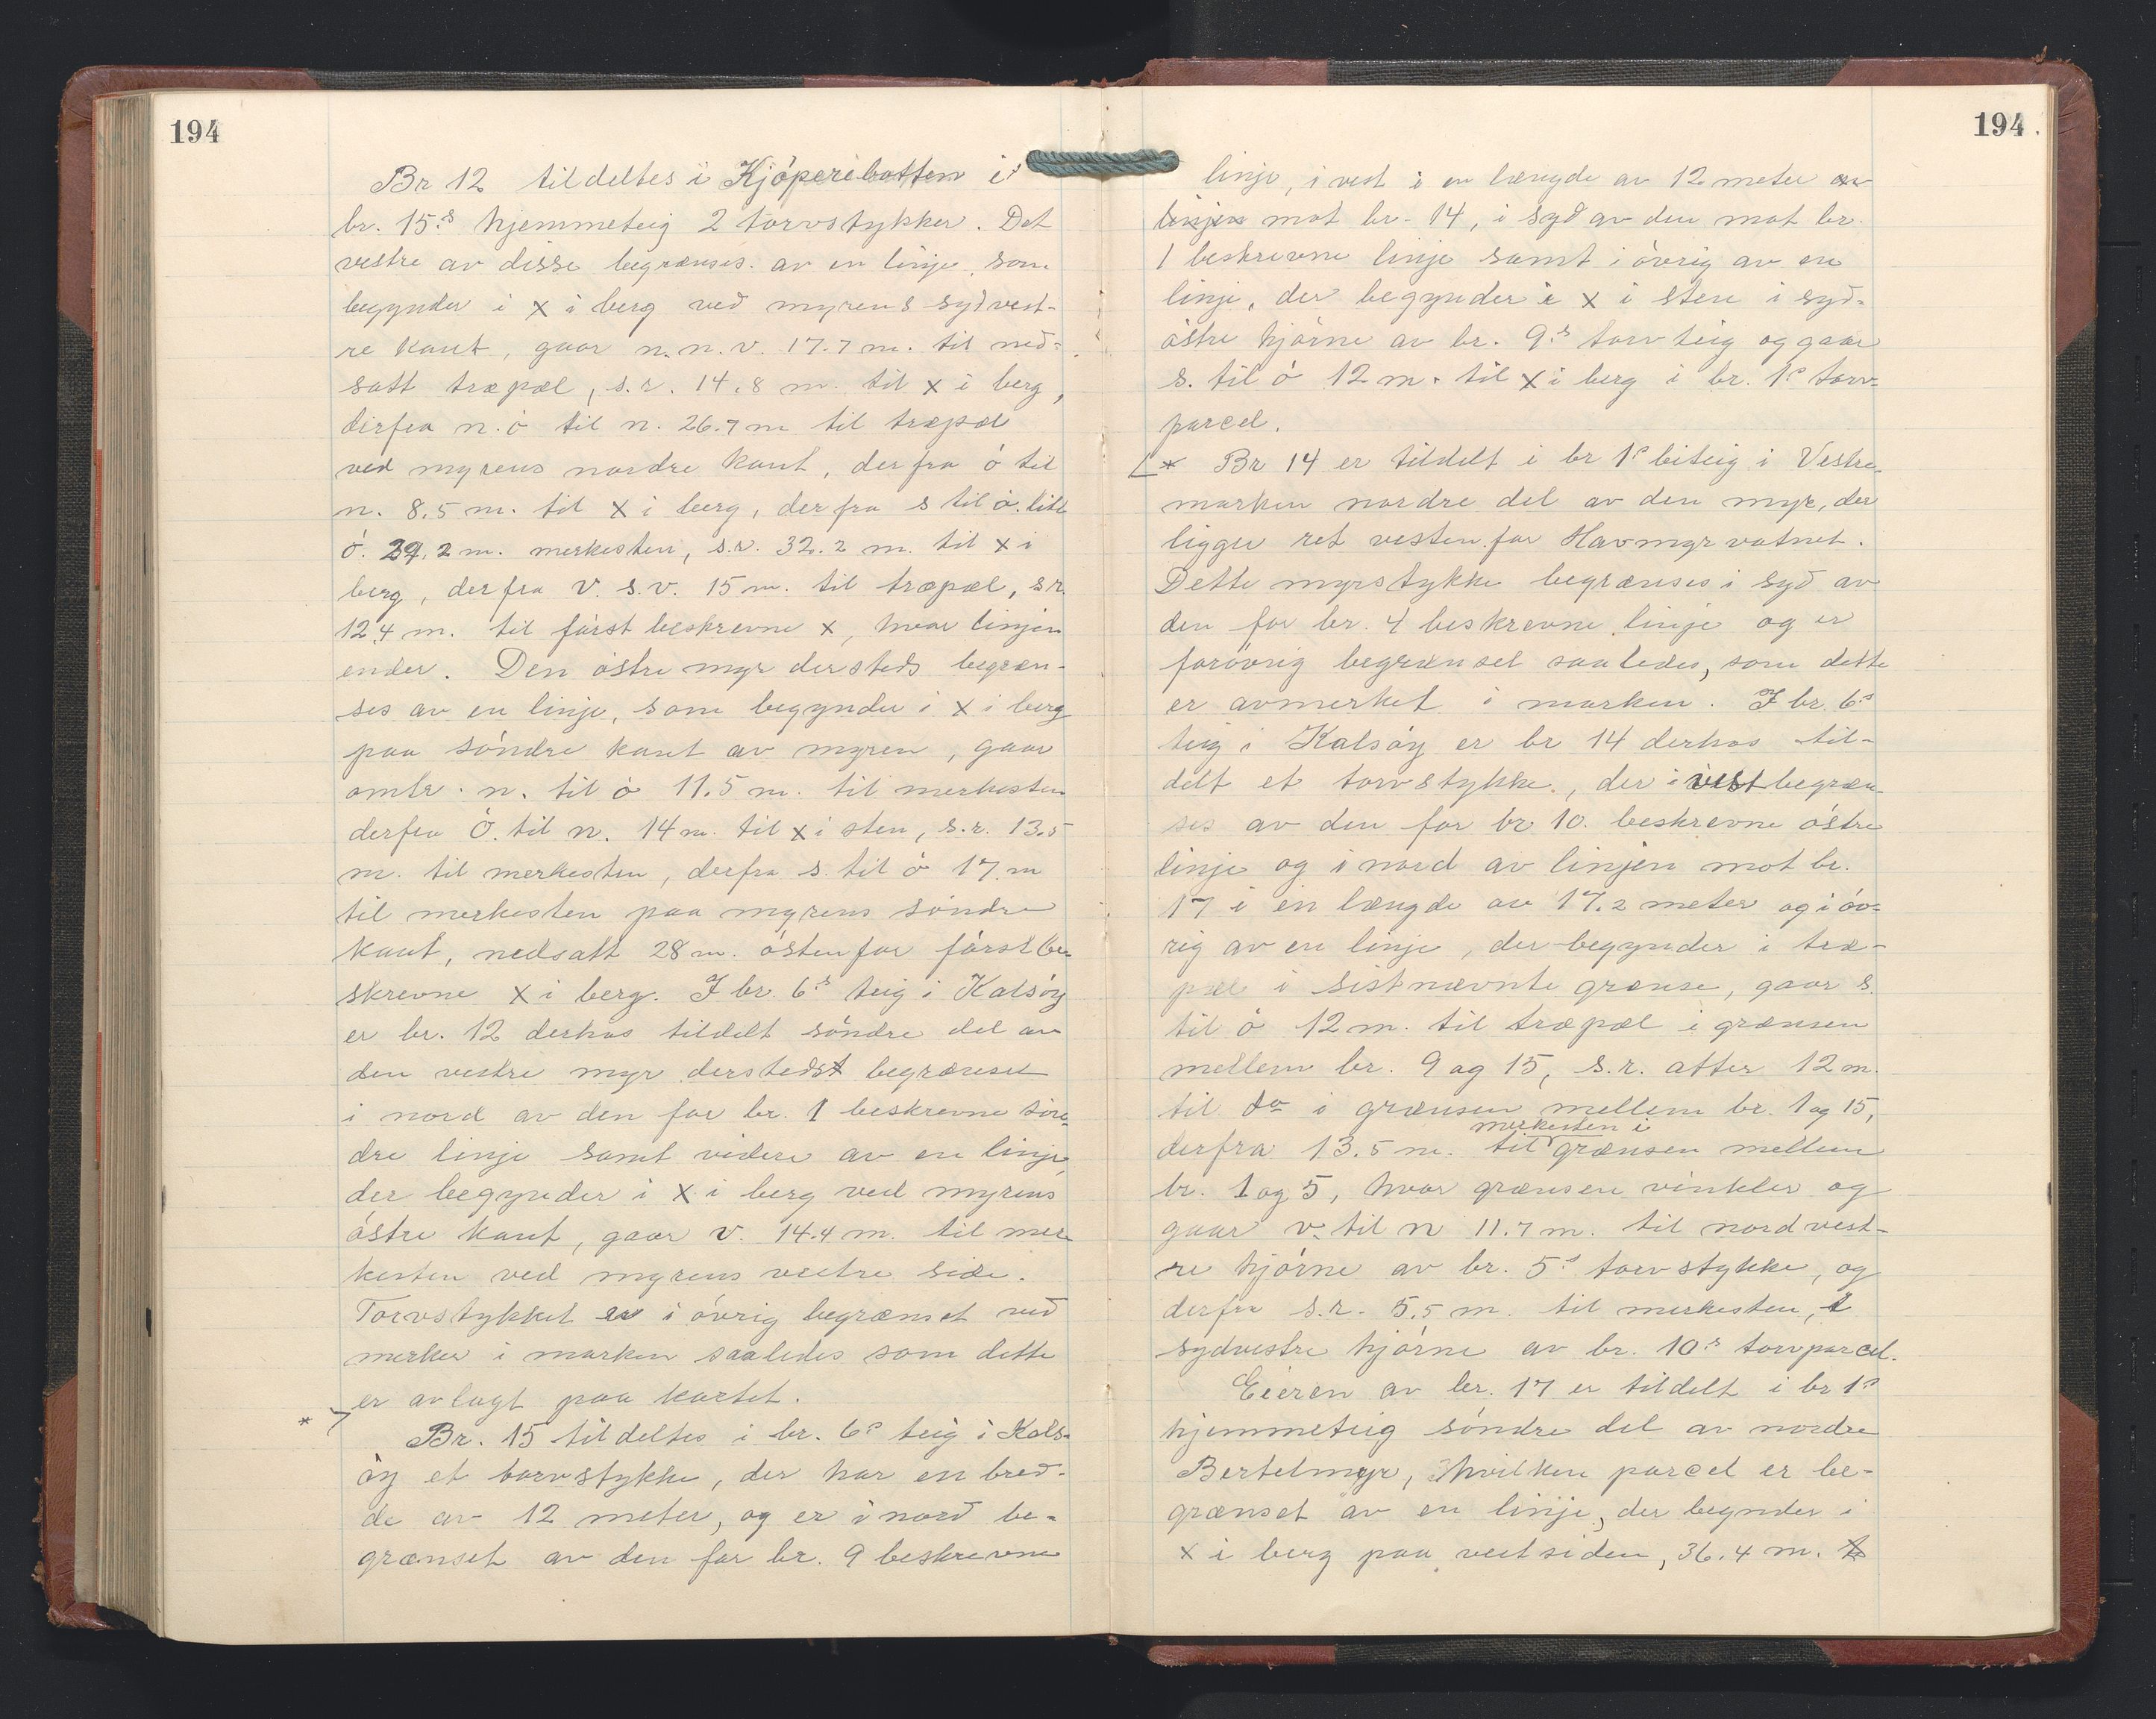 194
Br 12 tildeltes i Kjóperibotten i
br. 15s hjemmeteig 2 torvstykker. Det
vestre av disse begrænses av en linje, som
begynder i x i berg ved myrens sydvest-
re kant, gaar n.n.v. 17.7 m. til ned-
satt træpæl, s.r. 14.8 m. til x i berg,
derfra n.ó til n. 26.7 m til træpæl
ved myrens nordre kant, derfra ó til
n. 8.5 m. til x i berg, derfra s til ó. litt
ó. 29.2 m. merkesten, s.r. 32.2 m. til x i
berg, derfra v.s.v. 15 m. til træpæl, s.r.
12.4 m. til fórst beskrevne x, hvor linjen
ender. Den óstre myr dersteds begræn-
ses av en linje, som begynder i x i berg
paa sóndre kant av myren, gaar
omtr. n. til ó 11.5 m. til merkesten
derfra Ó. til n. 14 m. til x i sten, s.r. 13.5
m. til merkesten, derfra s. til ó 17 m
til merkesten paa myrens sóndre
kant, nedsatt 28 m. óstenfor fórst be-
skrevne x i berg. I br. 6s teig i Kalsóy
er br. 12 derhos tildelt sóndre del av
den vestre myr dersteds begrænset
i nord av den for br. 1 beskrevne són-
dre linje samt videre av en linje,
der begynder i x i berg ved myrens
óstre kant, gaar v. 14.4 m. til mer-
kesten ved myrens vestre side.
Torvstykket er i óvrig begrænset ved
merker i marken saaledes som dette
er avlagt paa kartet.
* 7
Br. 15 tildeltes i br. 6s teig i Kals-
óy et torvstykke, der har en bred-
de av 12 meter, og er i nord be-
grænset av den for br. 9 beskrevne
194.
linje, i vest i en længde av 12 meter av
linjen mot br. 14, i syd av den mot br.
1 beskrevne linje samt i óvrig av en
linje, der begynder i x i sten i syd-
óstre hjórne av br. 9s torvteig og gaar
s. til ó 12 m. til x i berg i br. 1s torv-
parcel.
* Br 14 er tildelt i br 1s biteig i Vestre-
marken nordre del av den myr, der
ligger ret vesten for Havmyrvatnet.
Dette myrstykke begrænses i syd av
den for br. 4 beskrevne linje og er
foróvrig begrænset saaledes, som dette
er avmerket i marken. I br. 6s
teig i Kalsóy er br 14 derhos til-
delt et torvstykke, der i vest begræn-
ses av den for br 10. beskrevne óstre
linje og i nord av linjen mot br.
17 i en længde av 17.2 meter og i óv-
rig av en linje, der begynder i træ-
pæl i sistnævnte grænse, gaar s.
til ó 12 m. til træpæl i grænsen
mellem br. 9 og 15, s.r. atter 12 m.
til do i grænsen mellem br. 1 og 15,
merkesten i
derfra 13.5 m. til grænsen mellem
br. 1 og 5, hvor grænsen vinkler og
gaar v. til n 11.7 m. til nordvest-
re hjórne av br. 5s torvstykke, og
derfra s.r. 5.5 m. til merkesten, i
sydvestre hjórne av br. 10s torvparcel.
Eieren av br. 17 er tildelt i br 1s
hjemmeteig sóndre del av nordre
Bertelmyr, hvilken parcel er be-
grænset av en linje, der begynder i
x i berg paa vestsiden, 36.4 m.